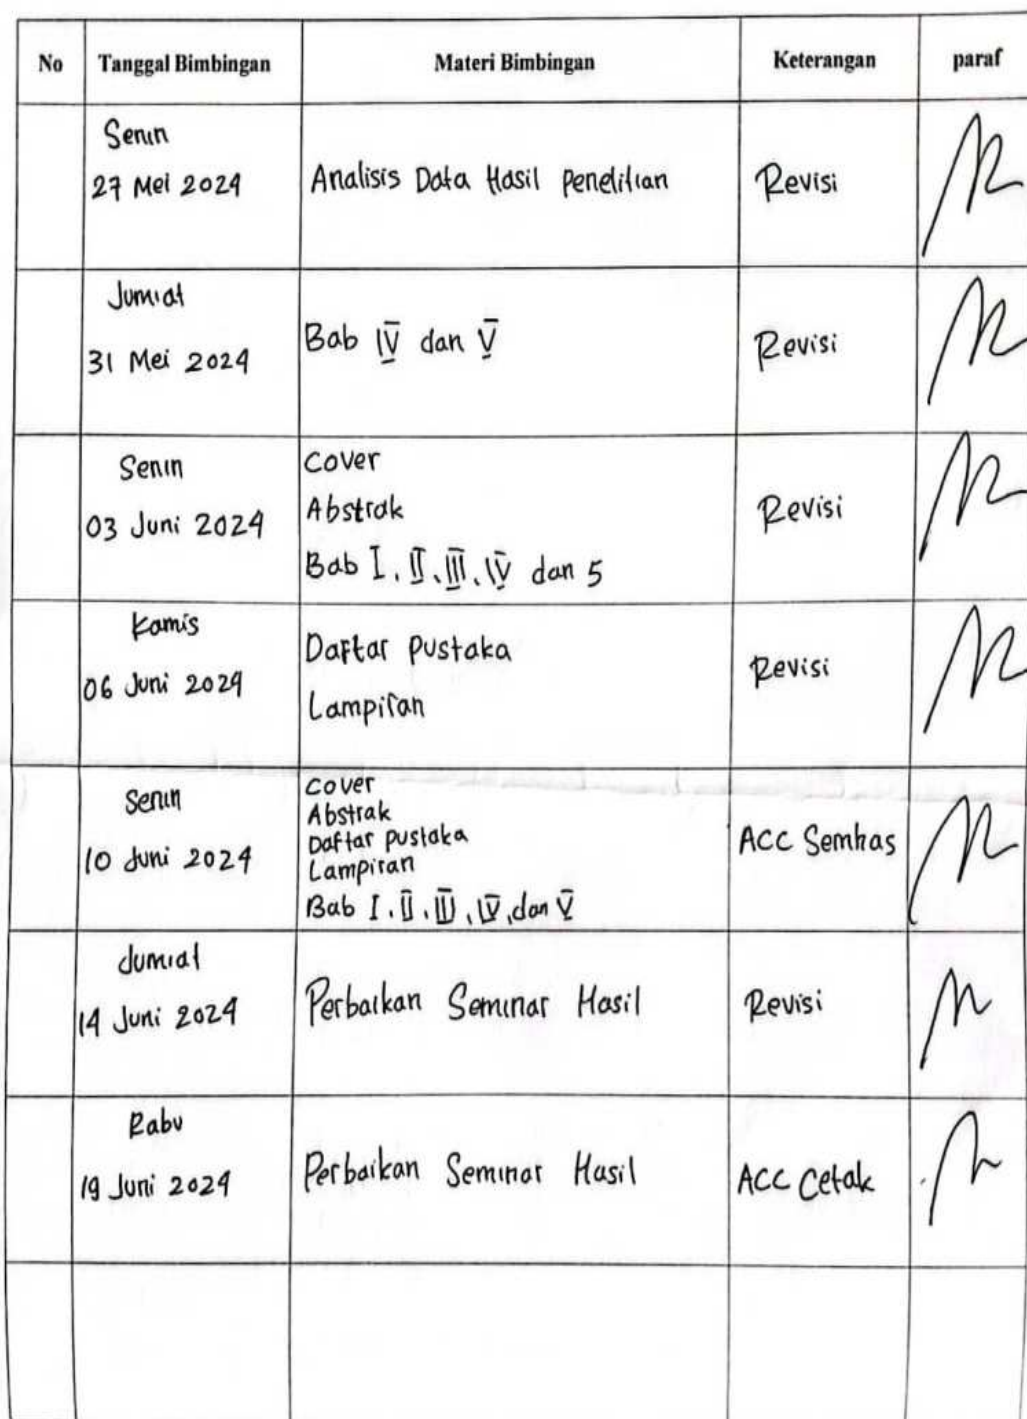 No Tanggal Bimbingan Materi Bimbingan Keterangan paraf
Senin
27 Mei 2024 Analisis Data Hasil penelitian Revisi
Jumiat
31 Mei 2024 Bab IV dan V Revisi
Senin
03 Juni 2024
Cover
Abstrak
Bab I, II, III, IV dan 5
Revisi
Kamis
06 Juni 2024
Daftar pustaka
Lampiran
Revisi
Senin
10 Juni 2024
Cover
Abstrak
Daftar pustaka
Lampiran
Bab I, II, III, IV, dan V
ACC Semhas
Jumiat
14 Juni 2024 Perbaikan Seminar Hasil Revisi
Rabu
19 Juni 2024 Perbaikan Seminar Hasil ACC Cetak